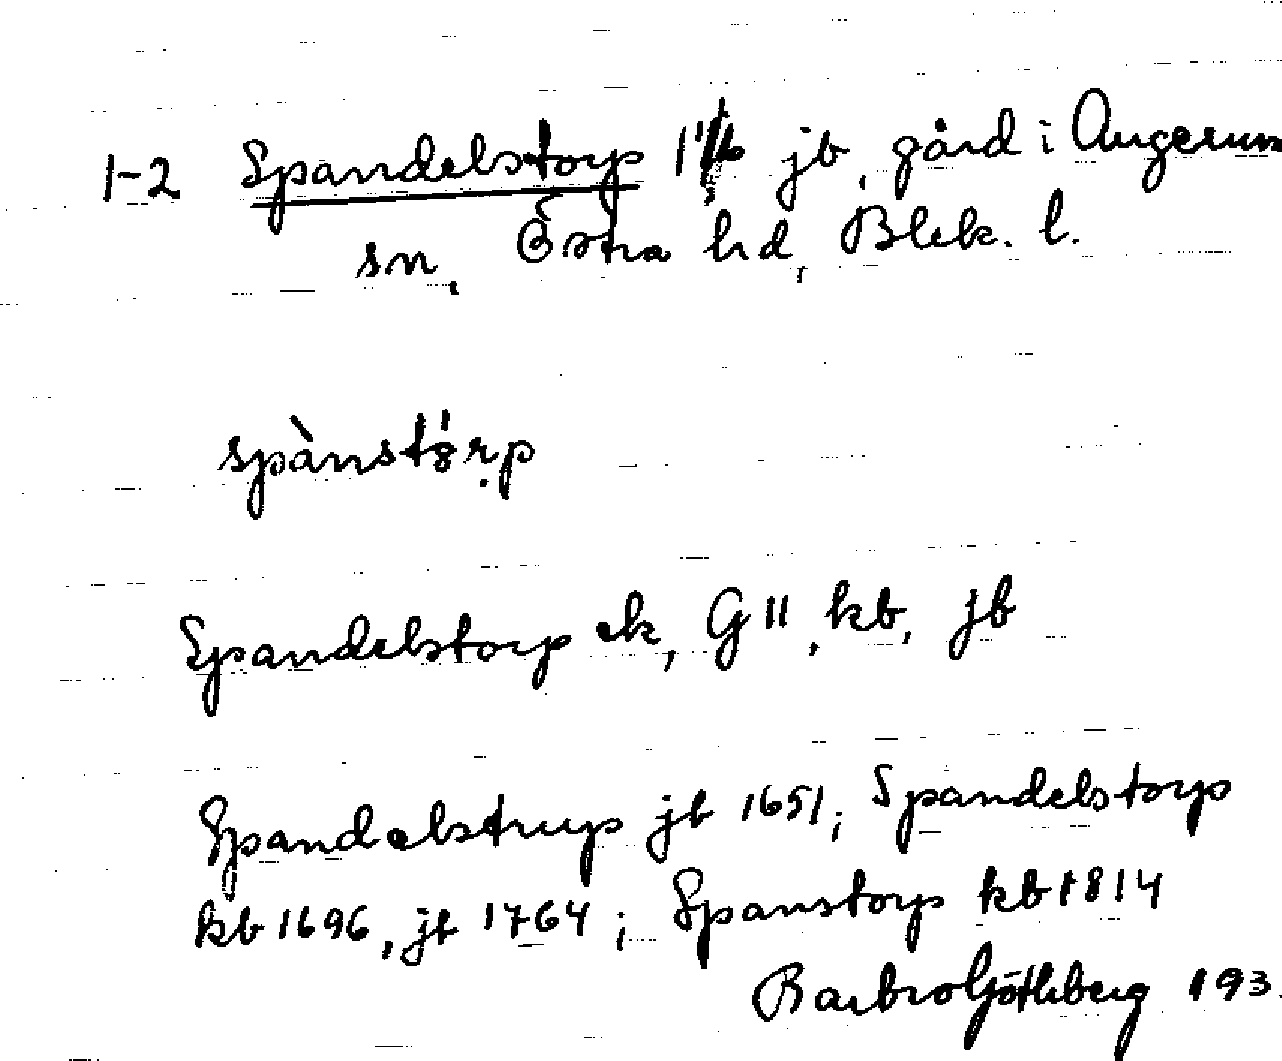 1-2 Spandelstorp 1 1/16 jb, gård i Augerum
sn, Östra hd, Blek. l.
spànstọ́rp
Spandelstorp ek, G 11, kb, jb
Spandelstrup jb 1651; Spandelstorp
kb 1696, jb 1764; Spanstorp kb 1814
Barbro Göthberg 193